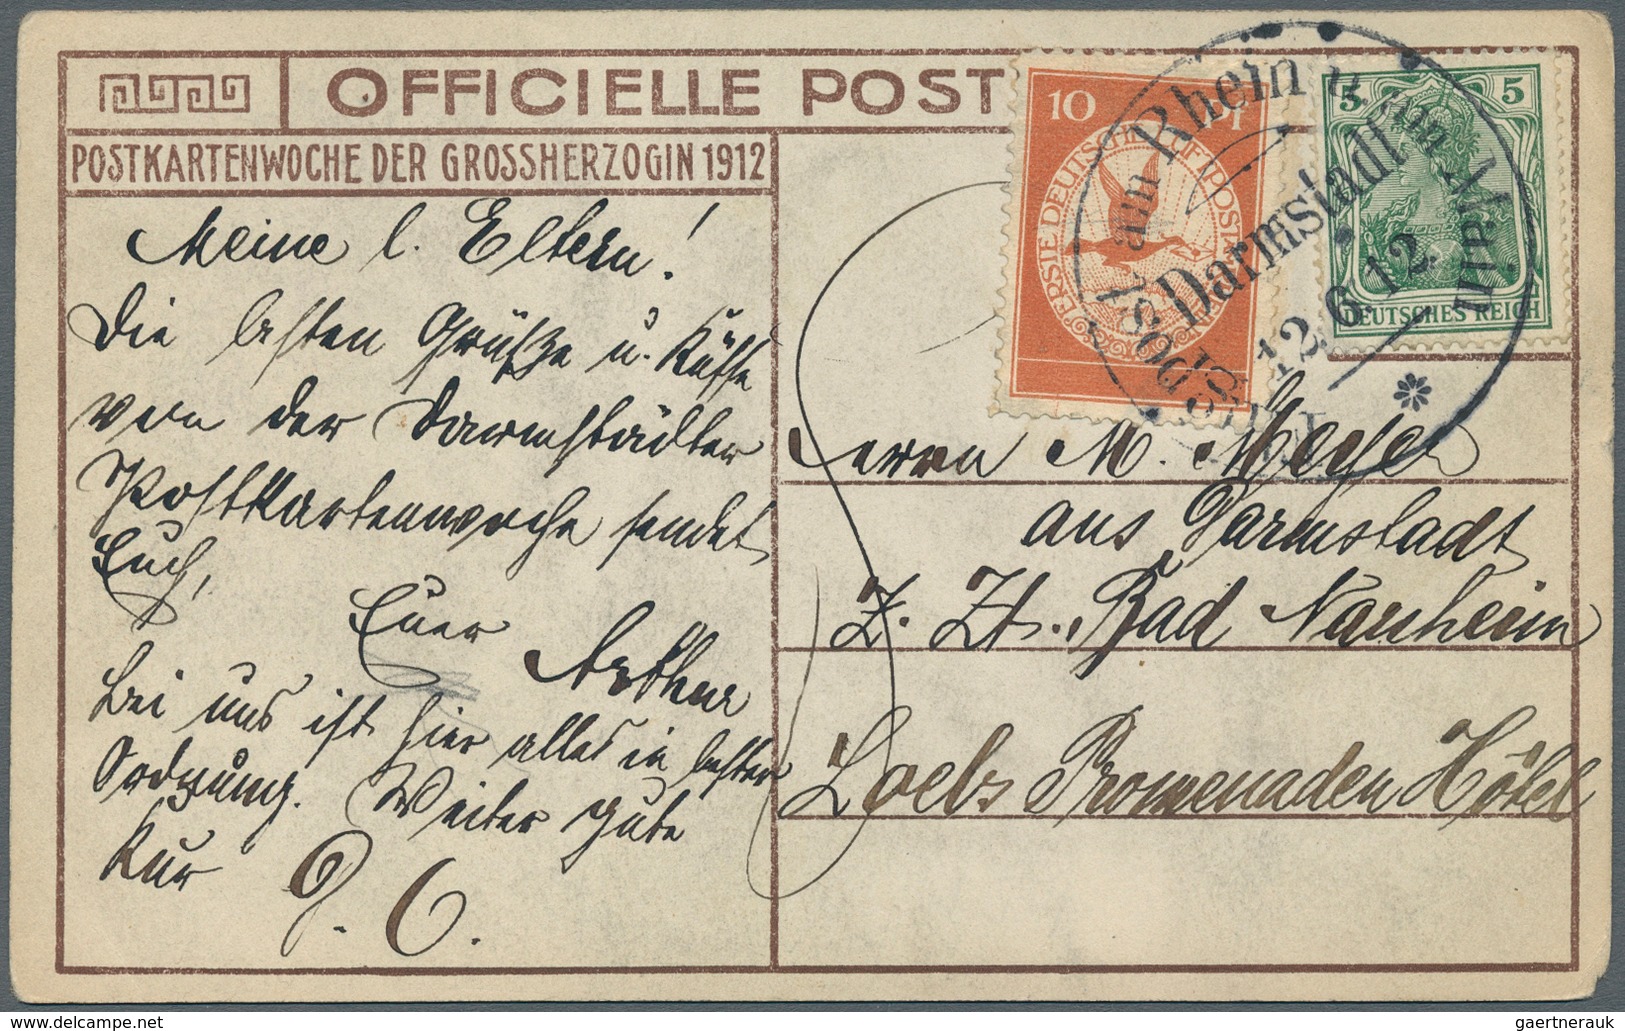 OFFICIELLE POST
POSTKARTENWOCHE DER GROSSHERZOGIN 1912
10
ERSTE DEUTSCHE LUFTPOST AM
5 5
DEUTSCHES REICH
am Rhein u. am Main
Darmstadt
12.6.12
Meine l. Eltern!
Die besten Grüße u. Küsse
von der Darmstädter
Postkartenwoche sendet
Euch,
Euer
Arthur
Bei uns ist hier alles in bester
Ordnung. Weiter gute
Kur
Herrn M. Meyer
aus Darmstadt
z. Zt. Bad Nauheim
Loebs Promenaden Hôtel
gaertnerauk